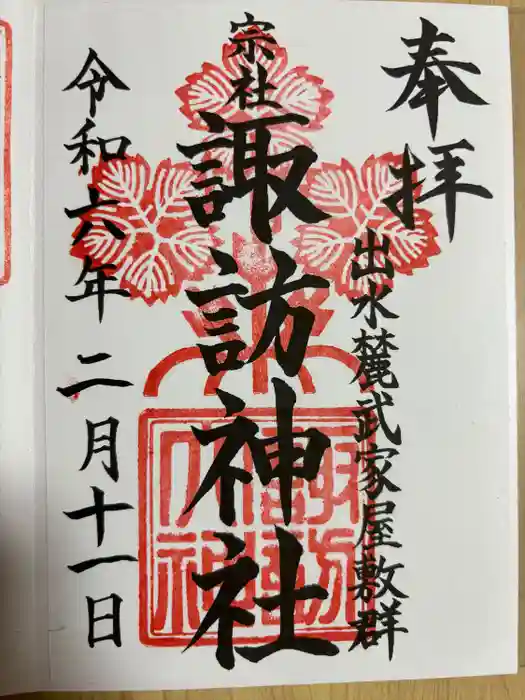 奉拝
出水麓武家屋敷群
宗社
諏訪神社
諏訪大神
令和六年二月十一日